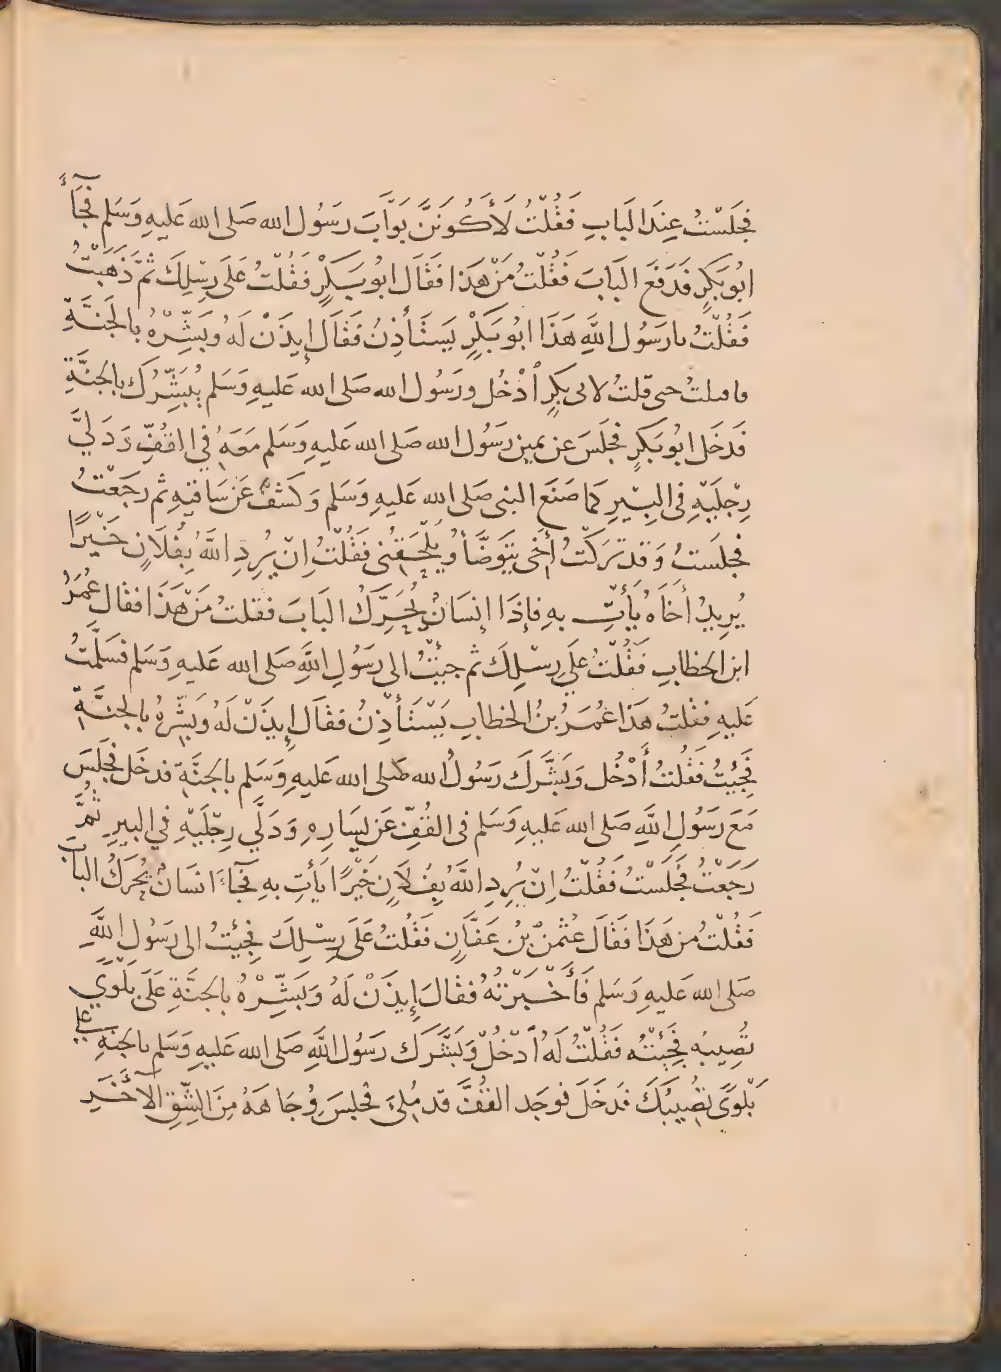 فَجَلَسْتُ عِندَ البَابِ فَقُلْتُ لَأَكُونَنَّ بَوَّابَ رَسُول الله صَلى الله عَليهِ وَسَلم فَجَآءَ
ابُو بَكرٍ فَدَفَعَ البَابَ فَقُلْتُ مَنْ هَذا فَقَال ابُو بَكْرٍ فَقُلْتُ عَلَى رِسْلِكَ ثُمَّ ذَهَبْتُ
فَقُلْتُ يارَسُول اللَّهِ هَذَا ابُو بَكْرٍ يَستَأذِنُ فَقَال إيذَنْ لَهُ وبَشِّرْهُ بالجَنَّةِ
فاقبلتُ حتى قلتُ لابى بَكرٍ اُدْخُل ورَسُول الله صَلى الله عَليهِ وَسَلم يُبَشِّرُك بالجَنَّةِ
فَدخَل ابُو بَكرٍ فجَلسَ عن يمين رسُول الله صَلى الله عَليهِ وَسَلم مَعَهُ فِي القُفِّ وَدَلىَّ
رِجْلَيْهِ فى البِئْيرِ كما صَنَع النبى صَلى الله عَليهِ وَسَلم وَكشفَ عَن سَاقيهِ ثم رجَعْتُ
فجلستُ وَقَد تَركْتُ أَخى يَتَوَضَّأُ ويَلْحَقنى فَقُلْتُ اِنْ يُرِدِ اللَّهُ بِفُلَانٍ خَيْرًا
يُرِيدُ أخَاهُ يَأتِ به فإذَا إنسَانٌ يُحَرِّكُ البَابَ فقلتُ مَنْ هَذَا فقَال عُمَرُ
ابن الخطابِ فَقُلْتُ عَلَى رِسْلِكَ ثم جئْتُ الى رَسُولِ اللَّهِ صَلى الله عَليهِ وَسَلم فسَلَّمْتُ
عَليهِ فقلتُ هَذا عُمَرُ بنُ الخطابِ يَسْتَأذِنُ فَقَال إيذَنْ لَهُ وبَشِّرهُ بالجنَّةِ
فَجِئْتُ فَقُلتُ أُدْخُل وَبَشَّرَك رَسُولُ الله صَلى الله عَليهِ وَسَلم بالجنَّةِ فدخَل فجَلسَ
مَعَ رَسُولِ اللَّهِ صَلى الله عَليهِ وَسَلم فى القُفِّ عَن يَسَارِهِ وَدَلَّي رِجْلَيْهِ في البيرِ ثُمَّ
رَجَعْتُ فَجَلَسْتُ فَقُلْتُ اِنْ يُرِدِ اللَّهُ بِفُلَانٍ خَيْرًا يَأتِ به فَجَآءَ انسَانٌ يُحَركُ البَابَ
فَقُلْتُ من هَذَا فَقَال عُثْمٰنُ بْنُ عَفَّانٍ فَقُلتُ عَلَى رِسْلِكَ فجِئتُ الى رَسُول اللَّهِ
صَلى الله عَليهِ وَسَلم فَأَخْبَرْتُهُ فقَالَ إيذَن لَهُ وَبَشِّرْهُ بالجنَّةِ عَلَى بَلْوَي
تُصِيبهُ فَجِئتُه فَقُلْتُ لَهُ اُدْخُلْ وَبَشَّرَك رَسُولُ اللَّهِ صَلى الله عَليهِ وَسَلم بالجنَّةِ على
بَلْوَىً تصُيبُكَ فَدخَلَ فوجَد القُفَّ قَد مُلِئَ فجَلسَ وُجَاهَهُ مِنَ الشِّقِ الآخَرِ